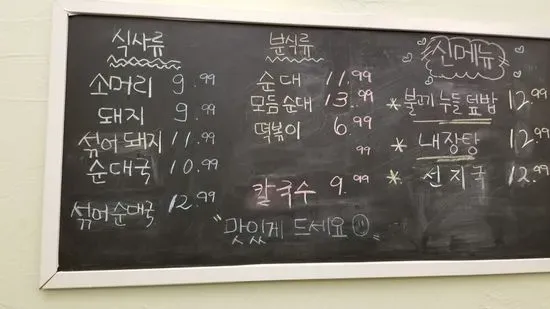 식사류
소머리 9.99
돼지 9.99
섞어돼지 11.99
순대국 10.99
섞어순대국 12.99
분식류
순대 11.99
모듬순대 13.99
떡볶이 6.99
99
칼국수 9.99
"맛있게 드세요"
신메뉴
* 불고기누들덮밥 12.99
* 내장탕 12.99
* 선지국 12.99